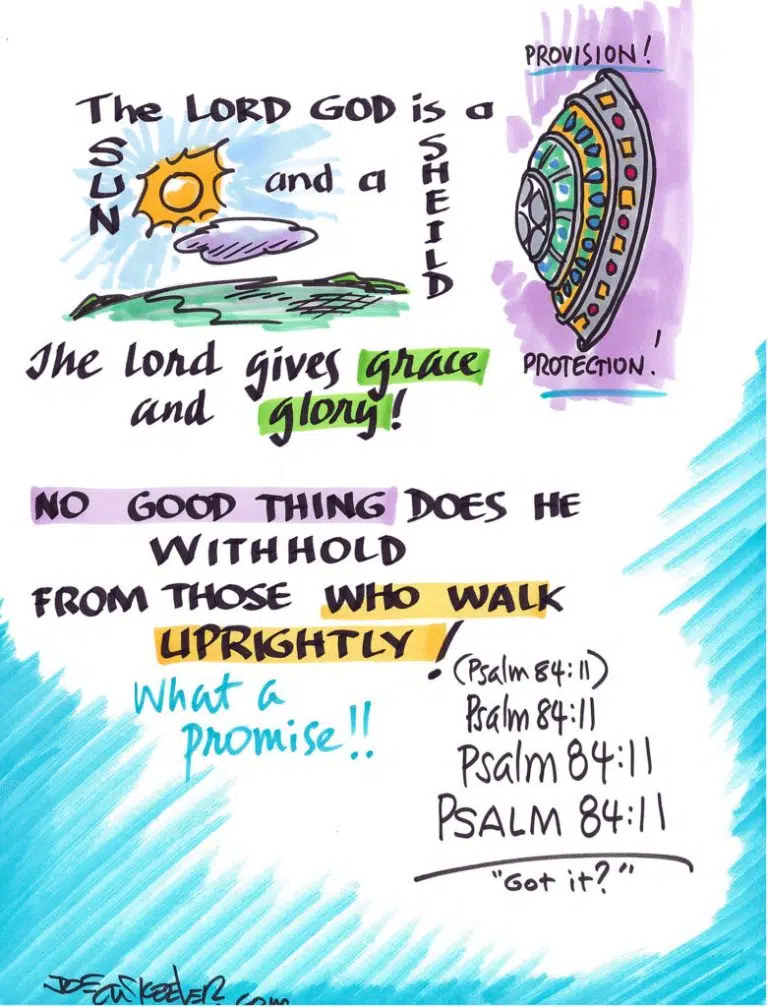 PROVISION!
The LORD GOD is a
SUN
and a
SHEILD
PROTECTION!
The Lord gives grace
and glory!
NO GOOD THING DOES HE
WITHHOLD
FROM THOSE WHO WALK
UPRIGHTLY!
(Psalm 84:11)
What a
promise!!
Psalm 84:11
Psalm 84:11
PSALM 84:11
"Got it?"
JOEMcKEEVER.com